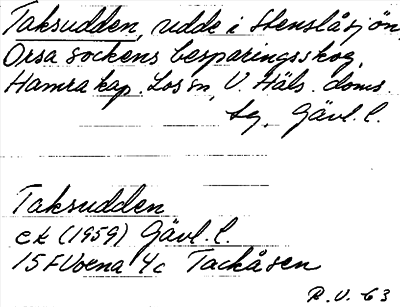 Taksudden, udde i Stenslåsjön,
Orsa sockens besparingsskog,
Hamra kap. Los sn, V. Häls. doms.
sg, Gävl. l.
Taksudden
ek (1959) Gävl. l.
15F Voxna 4c Tackåsen
R.U. 63